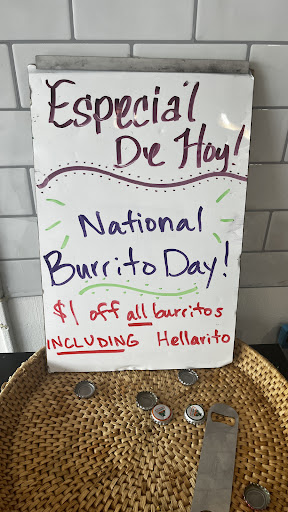 Especial
De Hoy!
National
Burrito Day!
$1 off all burritos
INCLUDING Hellarito